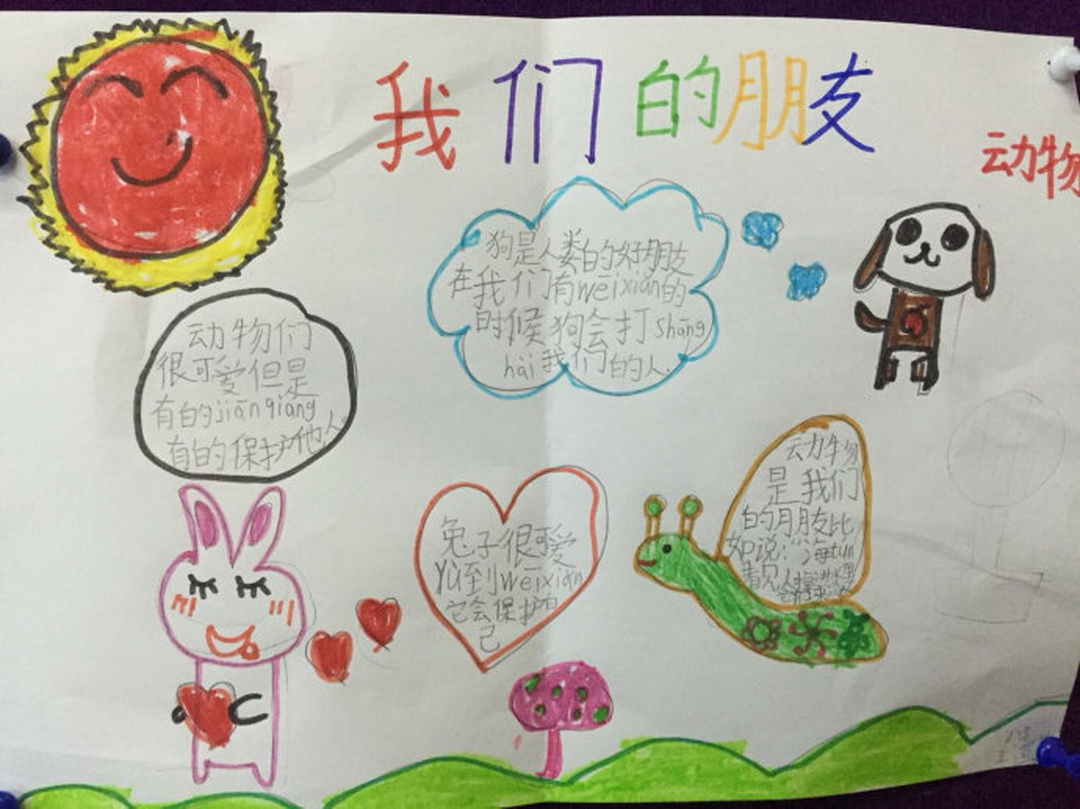 我们的朋友
动物
狗是人类的好朋友
在我们有wēixiǎn的
时候狗会打shāng
hài我们的人.
动物们
很可爱但是
有的jiānqiáng
有的保护他人
兔子很可爱
yù到wēixiǎn
它会保护自
己
动物
是我们
的朋友比
如说：海tún
看见人掉进水里